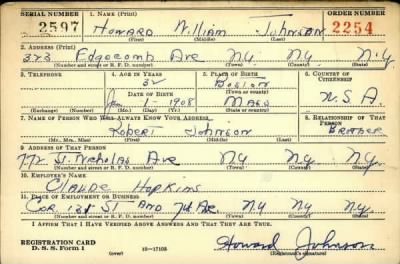 SERIAL NUMBER 1. NAME (Print) ORDER NUMBER
2597 HOWARD William JOHNSON 2254
(First) (Middle) (Last)
2. ADDRESS (Print)
323 Edgecomb Ave NY NY. N.Y.
(Number and street or R. F. D. number) (Town) (County) (State)
3. TELEPHONE 4. AGE IN YEARS 5. PLACE OF BIRTH 6. COUNTRY OF CITIZENSHIP
32 Boston
DATE OF BIRTH (Town or county)
Jan 1 - 1908 Mass U.S.A.
(Exchange) (Number) (Mo.) (Day) (Yr.) (State or country)
7. NAME OF PERSON WHO WILL ALWAYS KNOW YOUR ADDRESS 8. RELATIONSHIP OF THAT PERSON
Robert Johnson Brother
(Mr., Mrs., Miss) (First) (Middle) (Last)
9. ADDRESS OF THAT PERSON
772 St. Nicholas Ave NY NY. NY.
(Number and street or R. F. D. number) (Town) (County) (State)
10. EMPLOYER'S NAME
Claude Hopkins
11. PLACE OF EMPLOYMENT OR BUSINESS
Cor. 131 St and 7th Ave. NY NY. NY.
(Number and street or R. F. D. number) (Town) (County) (State)
I AFFIRM THAT I HAVE VERIFIED ABOVE ANSWERS AND THAT THEY ARE TRUE.
REGISTRATION CARD
D. S. S. Form 1 (over) 16-17105 Howard Johnson
(Registrant's signature)